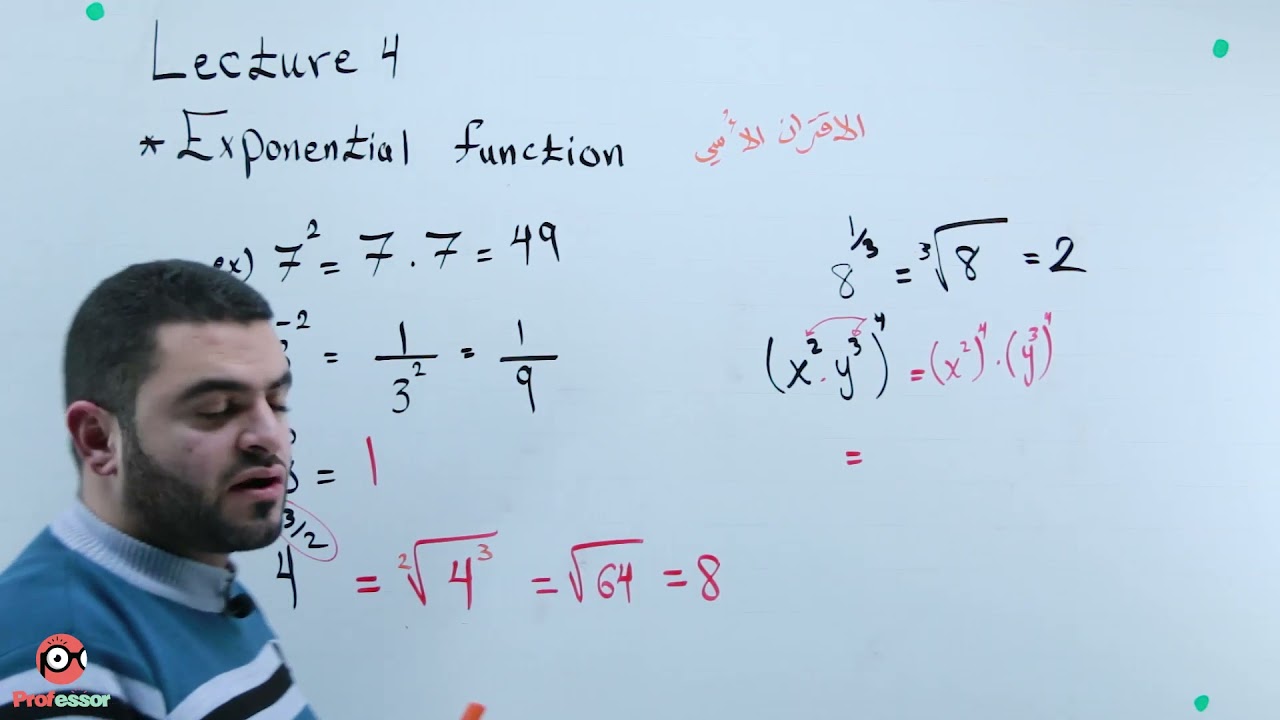 Lecture 4
* Exponential function الاقتران الأسي
ex) 7² = 7 . 7 = 49
⁻² = 1/3² = 1/9
= 1
4^3/2 = ²√4³ = √64 = 8
8^1/3 = ³√8 = 2
(x² . y³)⁴ = (x²)⁴ . (y³)⁴
=
Professor